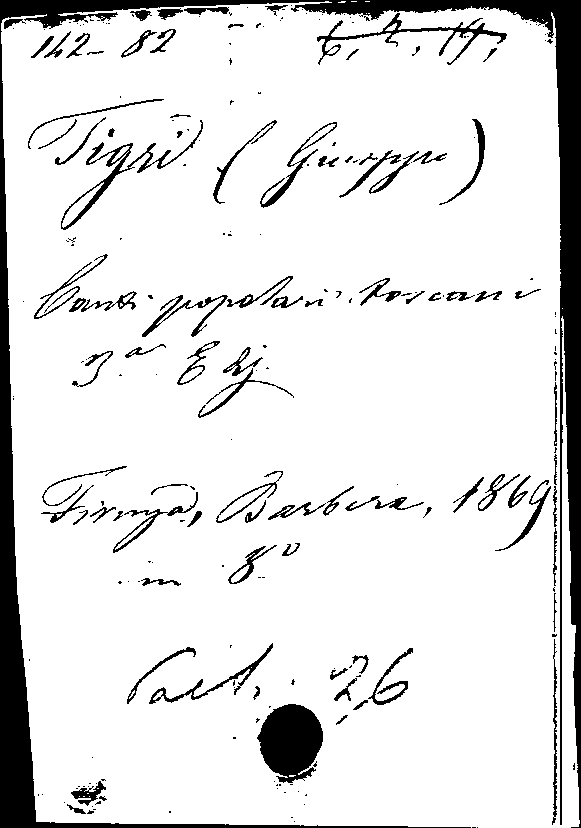 142-82 6, 2, 19,
Tigri (Giuseppe)
Canti popolari toscani
3a Ediz.
Firenze, Barbera, 1869
in 8o
26